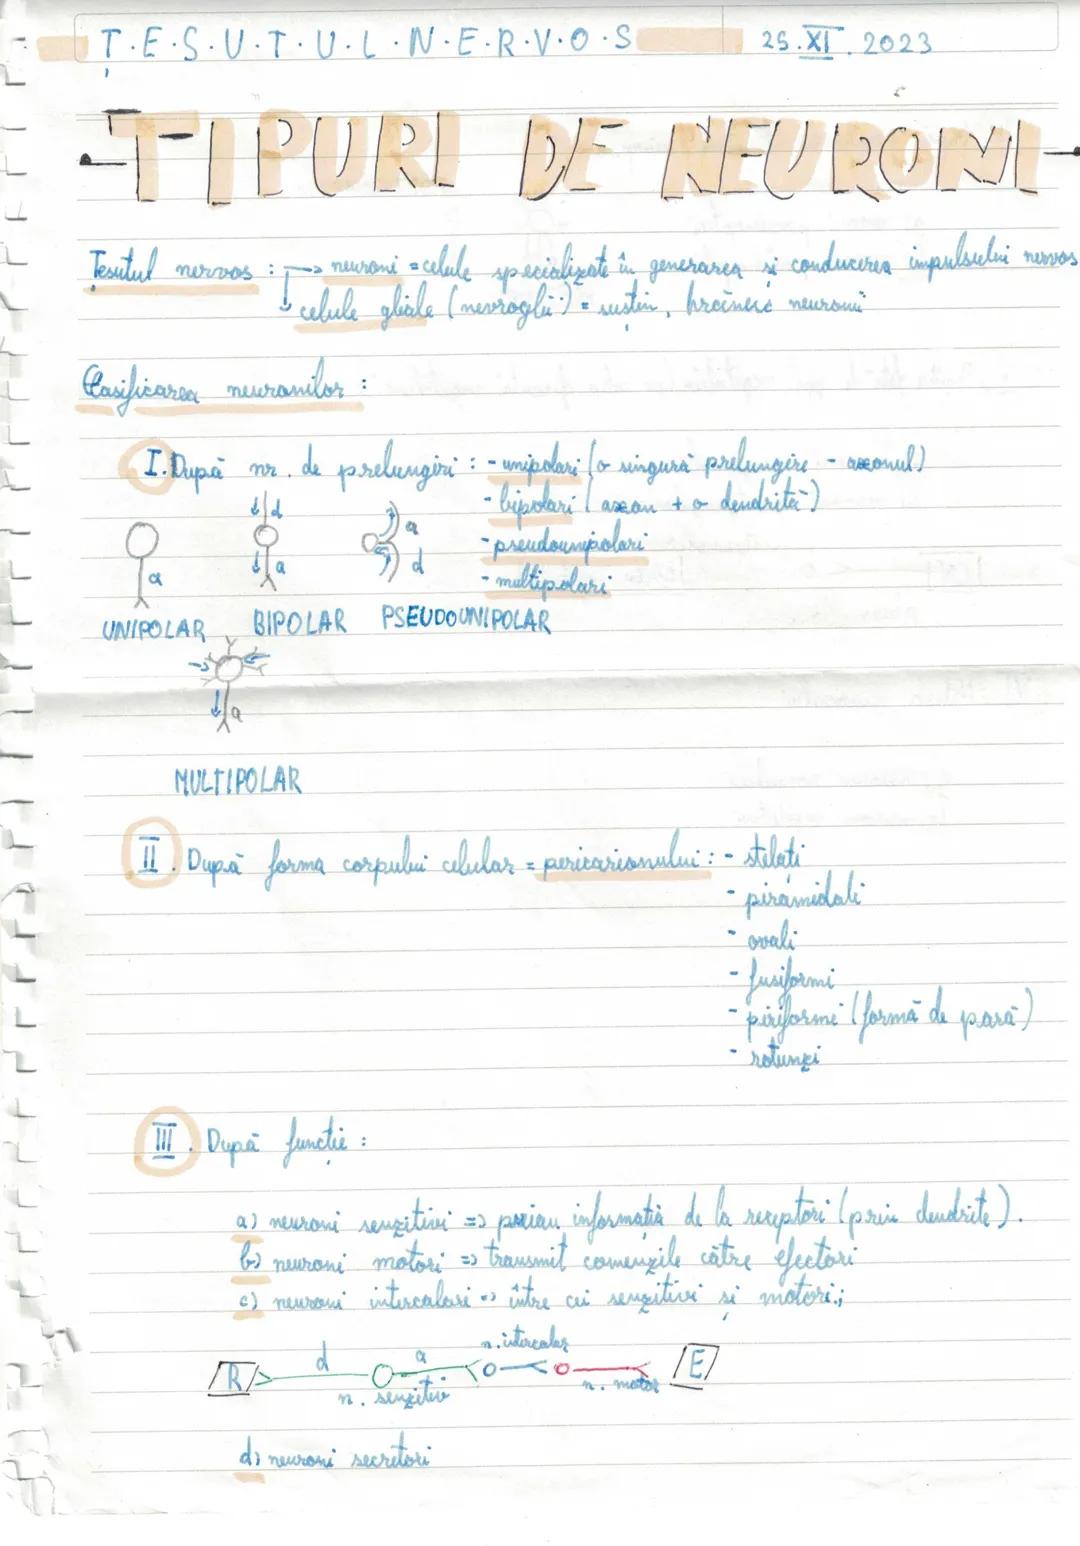 Ț.E.S.U.T.U.L.N.E.R.V.O.S 25.XI.2023
TIPURI DE NEURONI
Țesutul nervos : → neuroni = celule specializate în generarea și conducerea impulsului nervos
celule gliale (nevroglii) = susțin, hrănesc neuronii
Clasificarea neuronilor :
I. După nr. de prelungiri : - unipolari (o singură prelungire - axonul)
- bipolari (axon + o dendrită)
- pseudounipolari
- multipolari
d
a
a a
d
UNIPOLAR BIPOLAR PSEUDOUNIPOLAR
a
MULTIPOLAR
II. După forma corpului celular = pericarionului : - stelați
- piramidali
- ovali
- fusiformi
- piriformi (formă de pară)
- rotunzi
III. După funcție :
a) neuroni senzitivi => preiau informația de la receptori (prin dendrite).
b) neuroni motori => transmit comenzile către efectori
c) neuroni intercalari => între cei senzitivi și motori.;
R d a n. intercalar E
n. senzitiv n. motor
d) neuroni secretori